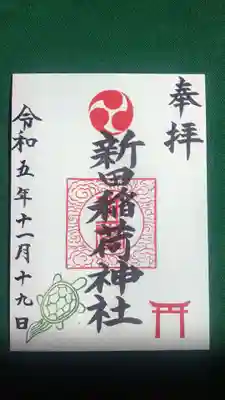 奉拝
新田稲荷神社
令和五年十一月十九日